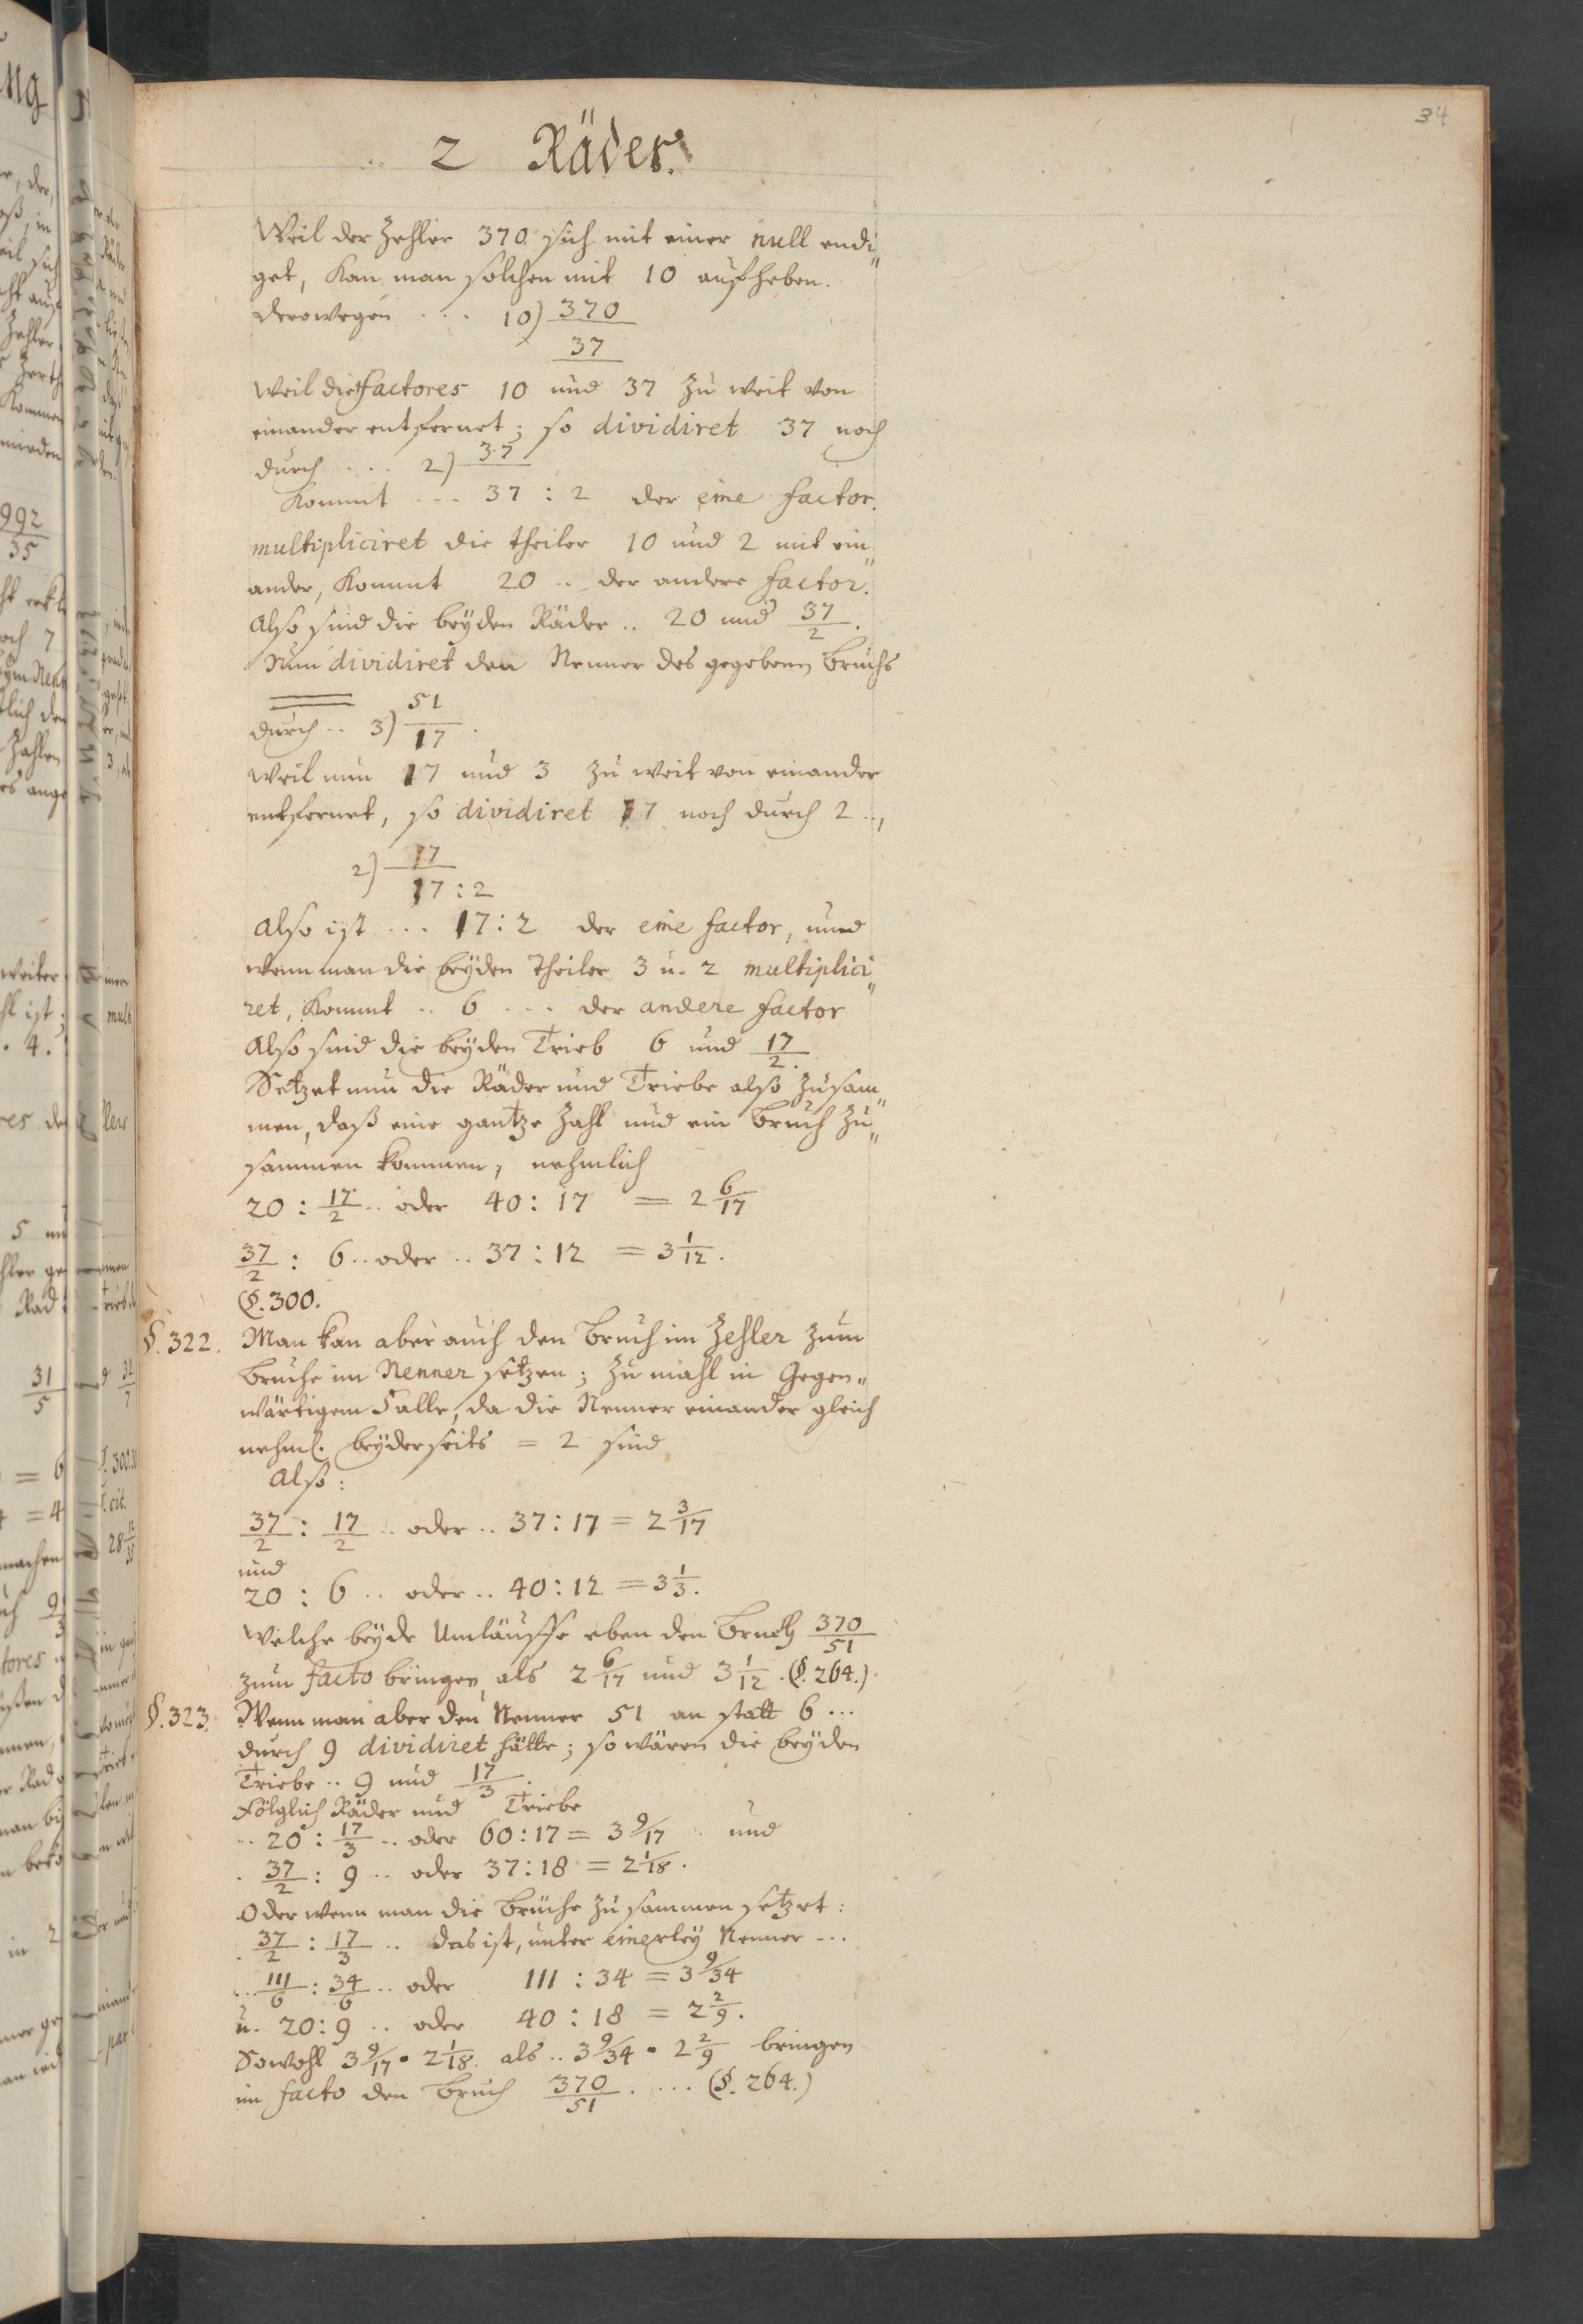 34
2 Räder.
Weil der Zehler 370 sich mit einer null endi„
get, kan man solchen mit 10 aufheben.
derowegen .... 10) 370
37
weil die factores 10 und 37 zu weit von
einander entfernet; so dividiret 37 noch
durch .... 2) 37
kommt --- 37 : 2 der eine factor.
multipliciret die theiler 10 und 2 mit ein„
ander, kommt 20 .. der andere factor.
Also sind die beÿden Räder .. 20 und 37/2.
Nun dividiret den Nenner des gegebenen bruchs
durch .. 3) 51/17.
weil nun 17 und 3 zu weit von einander
entfernet, so dividiret 17 noch durch 2 ..,
2) 17
17 : 2
also ist ... 17 : 2 der eine factor, und
wenn man die beÿden Theiler 3 u. 2 multiplici„
ret, kommt .. 6 ... der andere factor
Also sind die beÿden Trieb 6 und 17/2.
Setzet nun die Räder und Triebe also zusam„
men, daß eine gantze Zahl und ein bruch zu„
sammen kommen, nehmlich
20 : 17/2 .. oder 40 : 17 = 2 6/17
37/2 : 6 .. oder .. 37 : 12 = 3 1/12.
(§. 300.
§. 322. Man kan aber auch den bruch im Zehler zum
bruche im Nenner setzen; zu mahl in Gegen„
wärtigem Falle, da die Nenner einander gleich
nehml. beÿderseits = 2 sind
Also:
37/2 : 17/2 .. oder .. 37 : 17 = 2 3/17
und
20 : 6 .. oder .. 40 : 12 = 3 1/3.
Welche beÿde Umläuffe eben den bruch 370/51
zum facto bringen, als 2 6/17 und 3 1/12. (§. 264.)
§. 323. Wenn man aber den Nenner 51 an statt 6 ...
durch 9 dividiret hätte; so wären die beÿden
Triebe .. 9 und 17/3.
Fölglich Räder und Triebe
.. 20 : 17/3 .. oder 60 : 17 = 3 9/17 .. und
. 37/2 : 9 .. oder 37 : 18 = 2 1/18.
Oder wenn man die brüche zusammen setzet:
. 37/2 : 17/3 .. das ist, unter einerleÿ Nenner ...
... 111/6 : 34/6 .. oder 111 : 34 = 3 9/34
u. 20 : 9 .. oder 40 : 18 = 2 2/9.
Sowohl 3 9/17 • 2 1/18. als .. 3 9/34 • 2 2/9 bringen
im facto den bruch 370/51. ... (§. 264.)